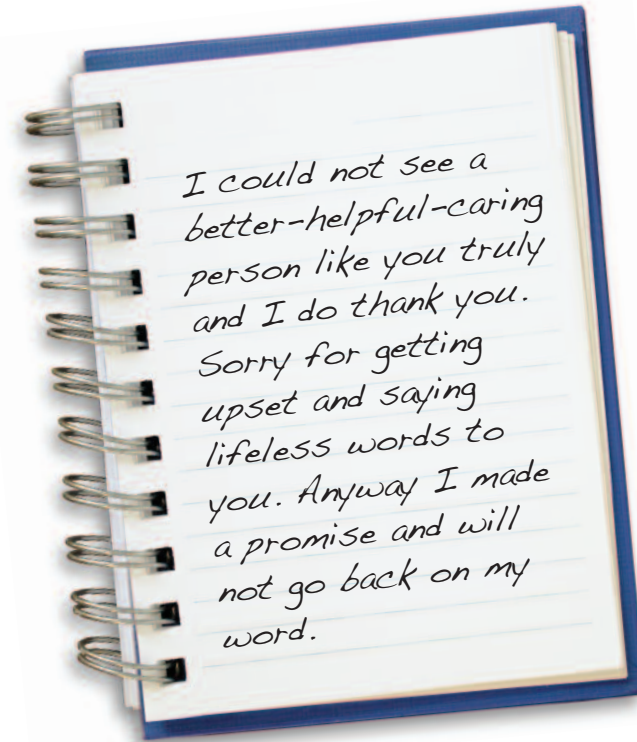 I could not see a
better-helpful-caring
person like you truly
and I do thank you.
Sorry for getting
upset and saying
lifeless words to
you. Anyway I made
a promise and will
not go back on my
word.